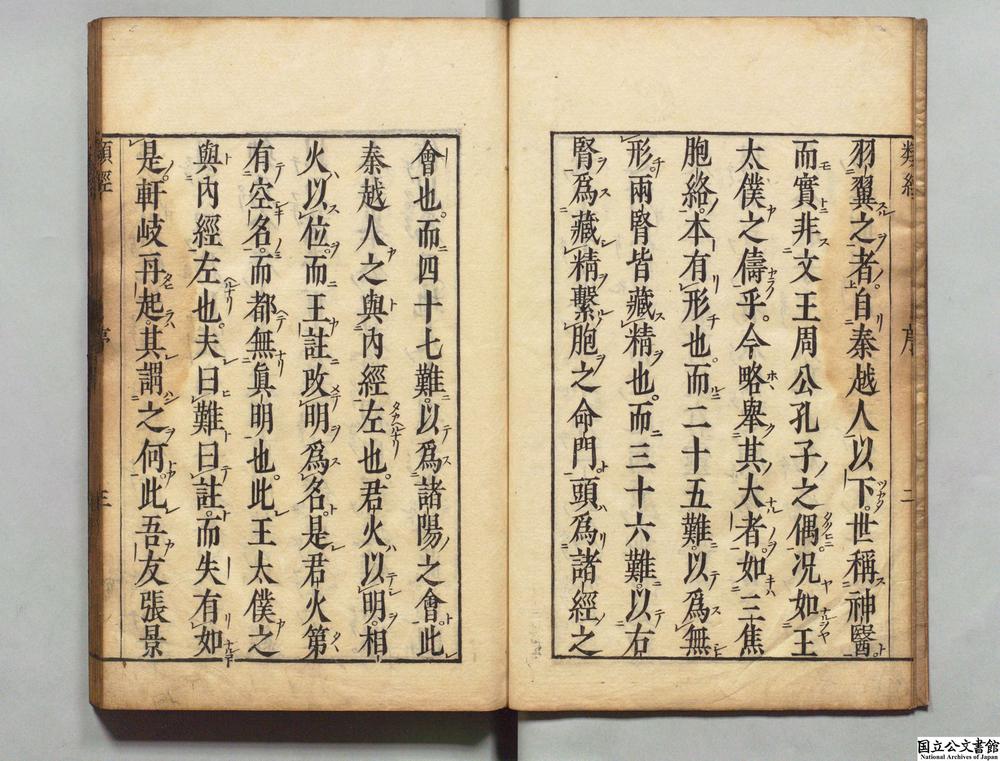 羽翼之者。自秦越人以下。世稱神醫。
而實非文王周公孔子之偶。况如王
太僕之儔乎。今略舉其大者。如三焦
胞絡。本有形也。而二十五難。以爲無
形。兩腎皆藏精也。而三十六難。以右
腎爲藏精繫胞之命門。頭爲諸經之
會也。而四十七難。以爲諸陽之會。此
秦越人之與内經左也。君火以明。相
火以位。而王註改明爲名。是君火第
有空名。而都無眞明也。此王太僕之
與内經左也。夫曰難曰註。而失有如
是。軒岐再起。其謂之何。此吾友張景
類經
序
二
類經
序
三
国立公文書館
National Archives of Japan